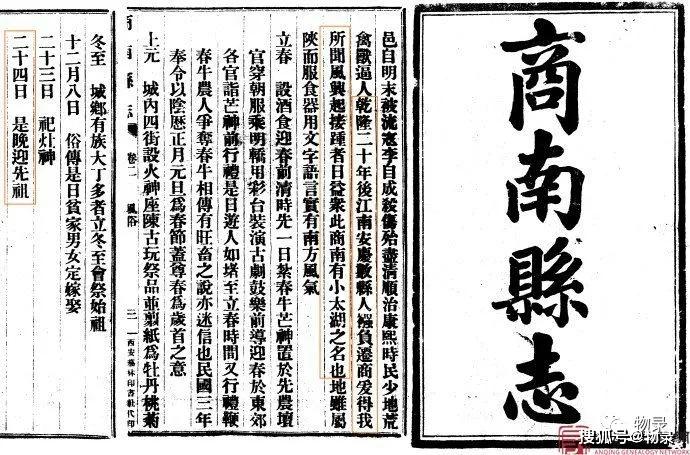 商南縣志
邑自明末被流寇李自成殺傷殆盡清順治康熙時民少地荒
禽獸逼人乾隆二十年後江南安慶數縣人襁負遷商爰得我
所聞風興起接踵者日益衆此商南有小太湖之名也地雖屬
陝而服食器用文字語言實有南方風氣
立春 設酒食迎春前清時先一日紮春牛芒神置於先農壇
官穿朝服乘明轎用彩台裝演古劇鼓樂前導迎春於東郊
各官詣芒神前行禮是日遊人如堵至立春時間又行禮鞭
春牛農人爭奪春牛相傳有旺畜之說亦迷信也民國三年
奉令以陰歷正月元旦爲春節蓋尊春爲歲首之意
上元 城內四街設火神座陳古玩祭品並剪紙爲牡丹桃菊
商南縣志 卷二 風俗 三 西安藝林印書社代印
冬至 城鄉有族大丁多者立冬至會祭始祖
十二月八日 俗傳是日貧家男女定嫁娶
二十三日 祀灶神
二十四日 是晚迎先祖
物录
搜狐号@物录
ANQING GENEALOGY NETWORK